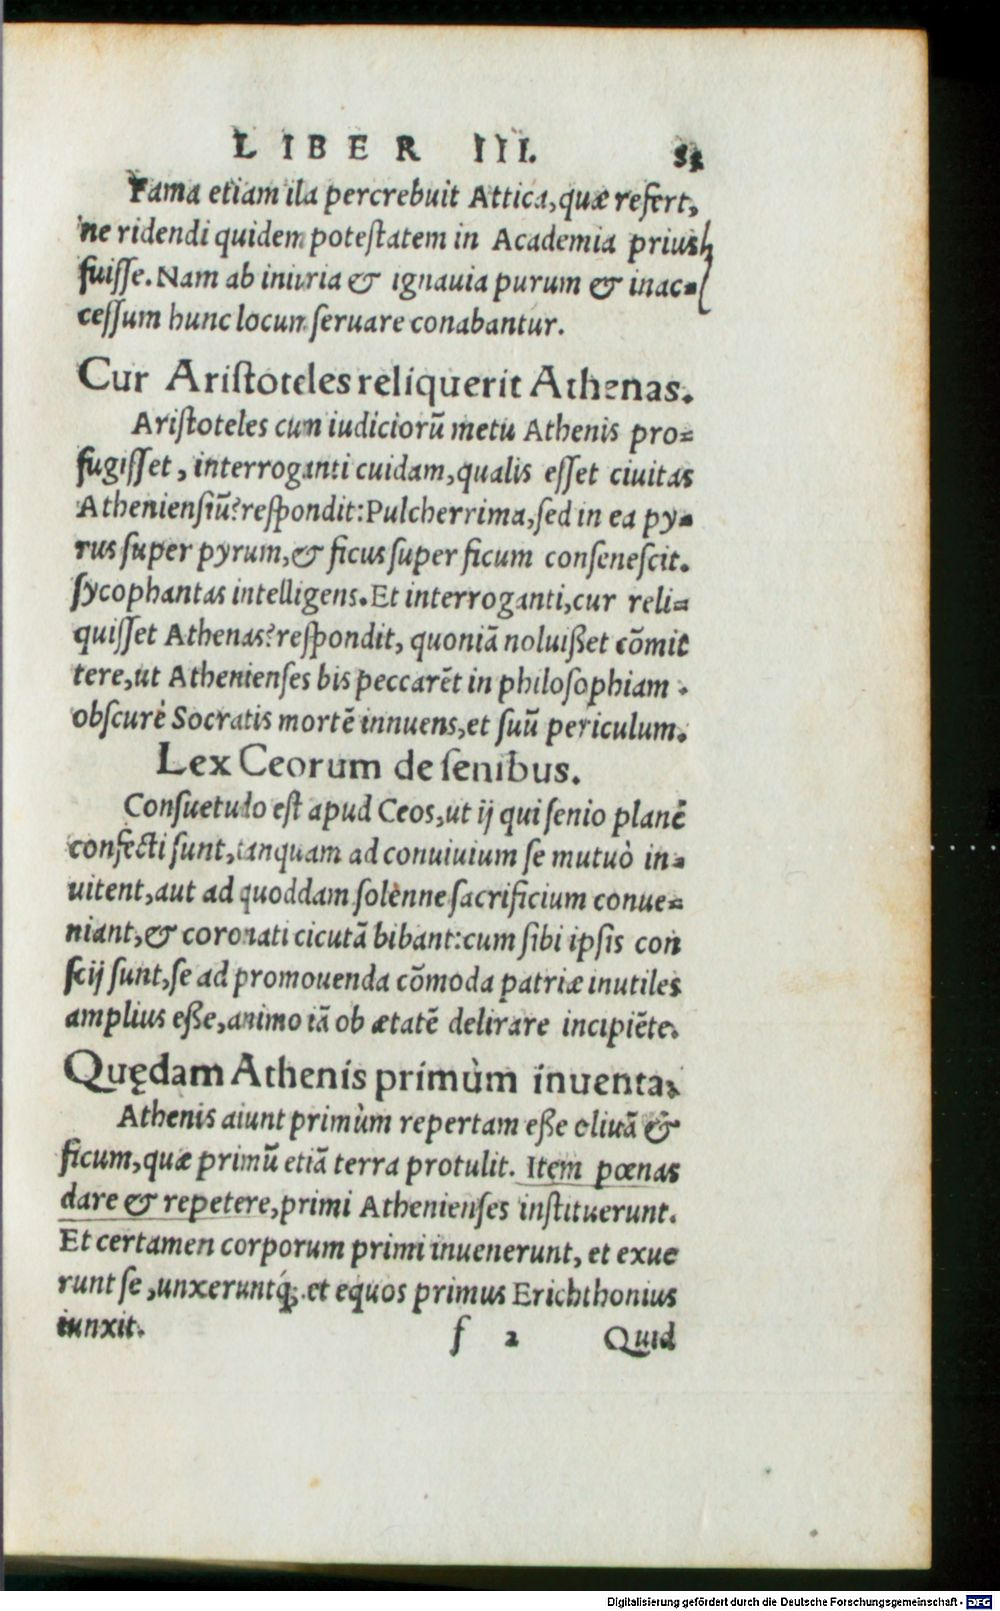 LIBER III. 83
Fama etiam illa percrebuit Attica, quæ refert,
ne ridendi quidem potestatem in Academia prius
fuisse. Nam ab iniuria & ignauia purum & inac-
cessum hunc locum seruare conabantur.
Cur Aristoteles reliquerit Athenas.
Aristoteles cum iudiciorũ metu Athenis pro-
fugisset, interroganti cuidam, qualis esset ciuitas
Atheniensiũ? respondit: Pulcherrima, sed in ea py-
rus super pyrum, & ficus super ficum consenescit.
sycophantas intelligens. Et interroganti, cur reli-
quisset Athenas? respondit, quoniã noluißet cõmit
tere, ut Athenienses bis peccarẽt in philosophiam.
obscurè Socratis mortẽ innuens, et suũ periculum.
Lex Ceorum de senibus.
Consuetudo est apud Ceos, ut ij qui senio planè
confecti sunt, tanquam ad conuiuium se mutuò in-
uitent, aut ad quoddam solenne sacrificium conue-
niant, & coronati cicutã bibant: cum sibi ipsis con
scij sunt, se ad promouenda cõmoda patriæ inutiles
amplius eße, animo iã ob ætatẽ delirare incipiẽte.
Quędam Athenis primùm inuenta.
Athenis aiunt primùm repertam eße oliuã &
ficum, quæ primũ etiã terra protulit. Item pœnas
dare & repetere, primi Athenienses instituerunt.
Et certamen corporum primi inuenerunt, et exue
runt se, unxeruntq́;. et equos primus Erichthonius
iunxit.
f 2 Quid
Digitalisierung gefördert durch die Deutsche Forschungsgemeinschaft - DFG